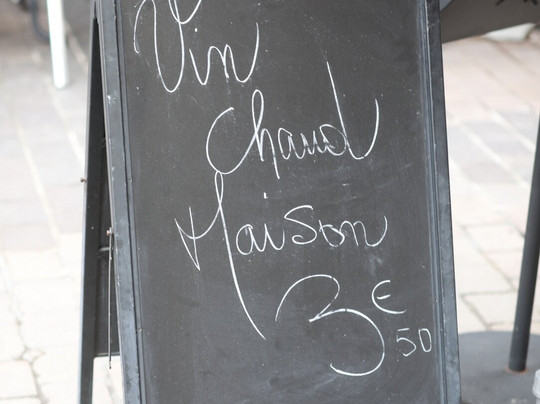 Vin
Chaud
Maison
3€50